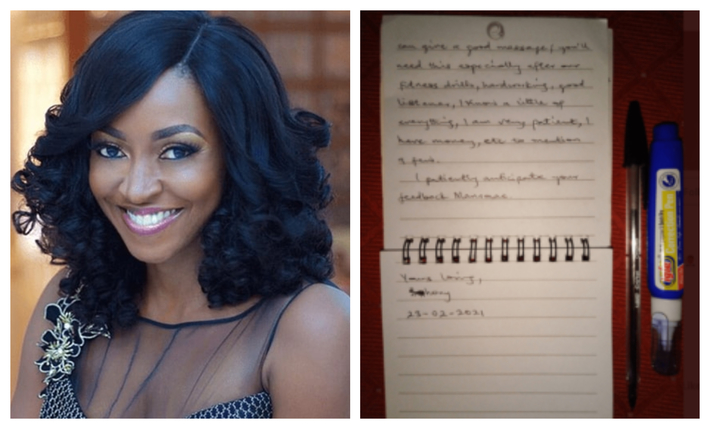 can give a good massage (you'll
need this especially after our
fitness drills, hardworking, good
listener, I know a little of
everything, I am very patient, I
have money, etc to mention
a few.
I patiently anticipate your
feedback
Yours loving,
23-02-2021